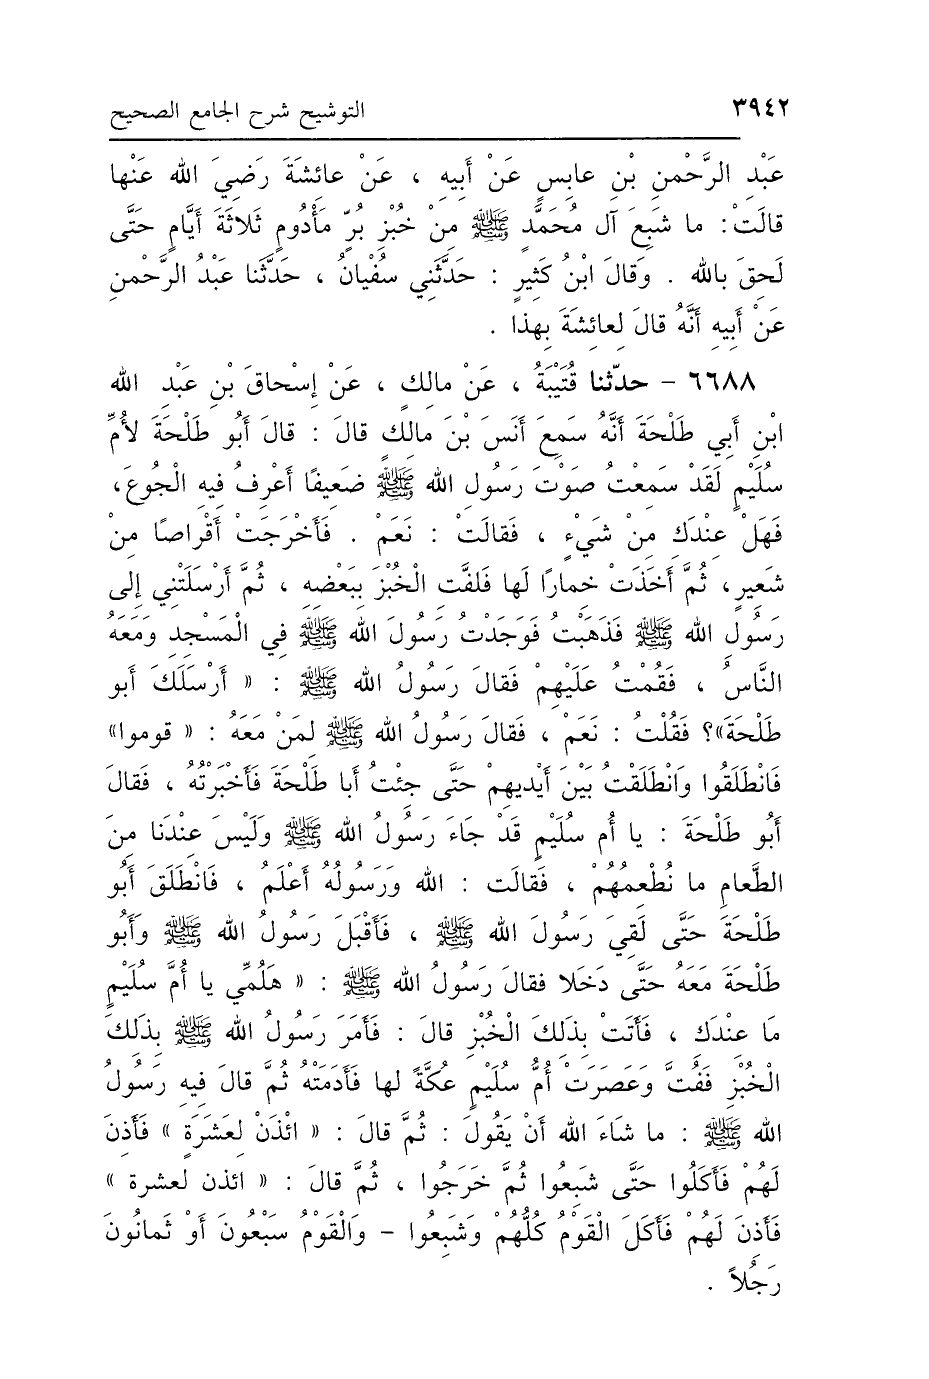 ٣٩٤٢ التوشيح شرح الجامع الصحيح
عَبْدِ الرَّحْمنِ بْنِ عابِسٍ عَنْ أَبِيهِ ، عَنْ عائِشَةَ رَضِيَ الله عَنْها
قالَتْ: ما شَبَعَ آل مُحَمَّدٍ ﷺ مِنْ خُبْزِ بُرٍّ مَأْدُومٍ ثَلاثَةَ أَيَّامٍ حَتَّى
لَحِقَ بالله . وَقالَ ابْنُ كَثِيرٍ : حَدَّثَنِي سُفْيانُ ، حَدَّثَنا عَبْدُ الرَّحْمنِ
عَنْ أَبِيهِ أَنَّهُ قالَ لِعائِشَةَ بِهذا .
٦٦٨٨ - حدّثنا قُتَيْبَةُ ، عَنْ مالِكٍ ، عَنْ إِسْحاقَ بْنِ عَبْدِ الله
ابْنِ أَبِي طَلْحَةَ أَنَّهُ سَمِعَ أَنَسَ بْنَ مالِكٍ قالَ : قالَ أَبُو طَلْحَةَ لأُمِّ
سُلَيْمٍ لَقَدْ سَمِعْتُ صَوْتَ رَسُولِ الله ﷺ ضَعِيفًا أَعْرِفُ فِيهِ الْجُوعَ،
فَهَلْ عِنْدَكِ مِنْ شَيْءٍ ، فَقالَتْ : نَعَمْ . فَأَخْرَجَتْ أَقْراصًا مِنْ
شَعِيرٍ، ثُمَّ أَخَذَتْ خمارًا لَها فَلفَّت الْخُبْزَ بِبَعْضِهِ ، ثُمَّ أَرْسَلَتْنِي إِلى
رَسُولِ الله ﷺ فَذَهَبْتُ فَوَجَدْتُ رَسُولَ الله ﷺ فِي الْمَسْجِدِ وَمَعَهُ
النَّاسُ ، فَقُمْتُ عَلَيْهِمْ فَقالَ رَسُولُ الله ﷺ : « أَرْسَلَكَ أَبو
طَلْحَةَ»؟ فَقُلْتُ : نَعَمْ ، فَقالَ رَسُولُ الله ﷺ لِمَنْ مَعَهُ : « قوموا»
فَانْطَلَقُوا وَانْطَلَقْتُ بَيْنَ أَيْدِيهِمْ حَتَّى جِئْتُ أَبا طَلْحَةَ فَأَخْبَرْتُهُ ، فَقالَ
أَبُو طَلْحَةَ : يا أُم سُلَيْمٍ قَدْ جَاءَ رَسُولُ الله ﷺ وَلَيْسَ عِنْدَنا مِنَ
الطَّعامِ ما نُطْعِمُهُمْ ، فَقالَت : الله وَرَسُولُهُ أَعْلَمُ ، فَانْطَلَقَ أَبُو
طَلْحَةَ حَتَّى لَقِيَ رَسُولَ الله ﷺ ، فَأَقْبَلَ رَسُولُ الله ﷺ وَأَبُو
طَلْحَةَ مَعَهُ حَتَّى دَخَلا فقالَ رَسُولُ الله ﷺ : « هَلُمِّي يا أُمَّ سُلَيْمٍ
مَا عِنْدَك ، فَأَتَتْ بِذَلِكَ الْخُبْزِ قالَ : فَأَمَرَ رَسُولُ الله ﷺ بِذَلِكَ
الْخُبْزِ فَفُتَّ وَعَصَرَتْ أُمُّ سُلَيْمٍ عكَّةً لها فَأَدَمَتْهُ ثُمَّ قالَ فِيهِ رَسُولُ
الله ﷺ : ما شاءَ الله أَنْ يَقُولَ : ثُمَّ قالَ : « ائْذَنْ لِعَشَرَةٍ » فَأَذِنَ
لَهُمْ فَأَكَلُوا حَتَّى شَبِعُوا ثُمَّ خَرَجُوا ، ثُمَّ قالَ : « ائذن لعشرة »
فَأَذِنَ لَهُمْ فَأَكَلَ الْقَوْمُ كُلُّهُمْ وَشَبِعُوا - وَالْقَوْمُ سَبْعُونَ أَوْ ثَمانُونَ
رَجُلاً .